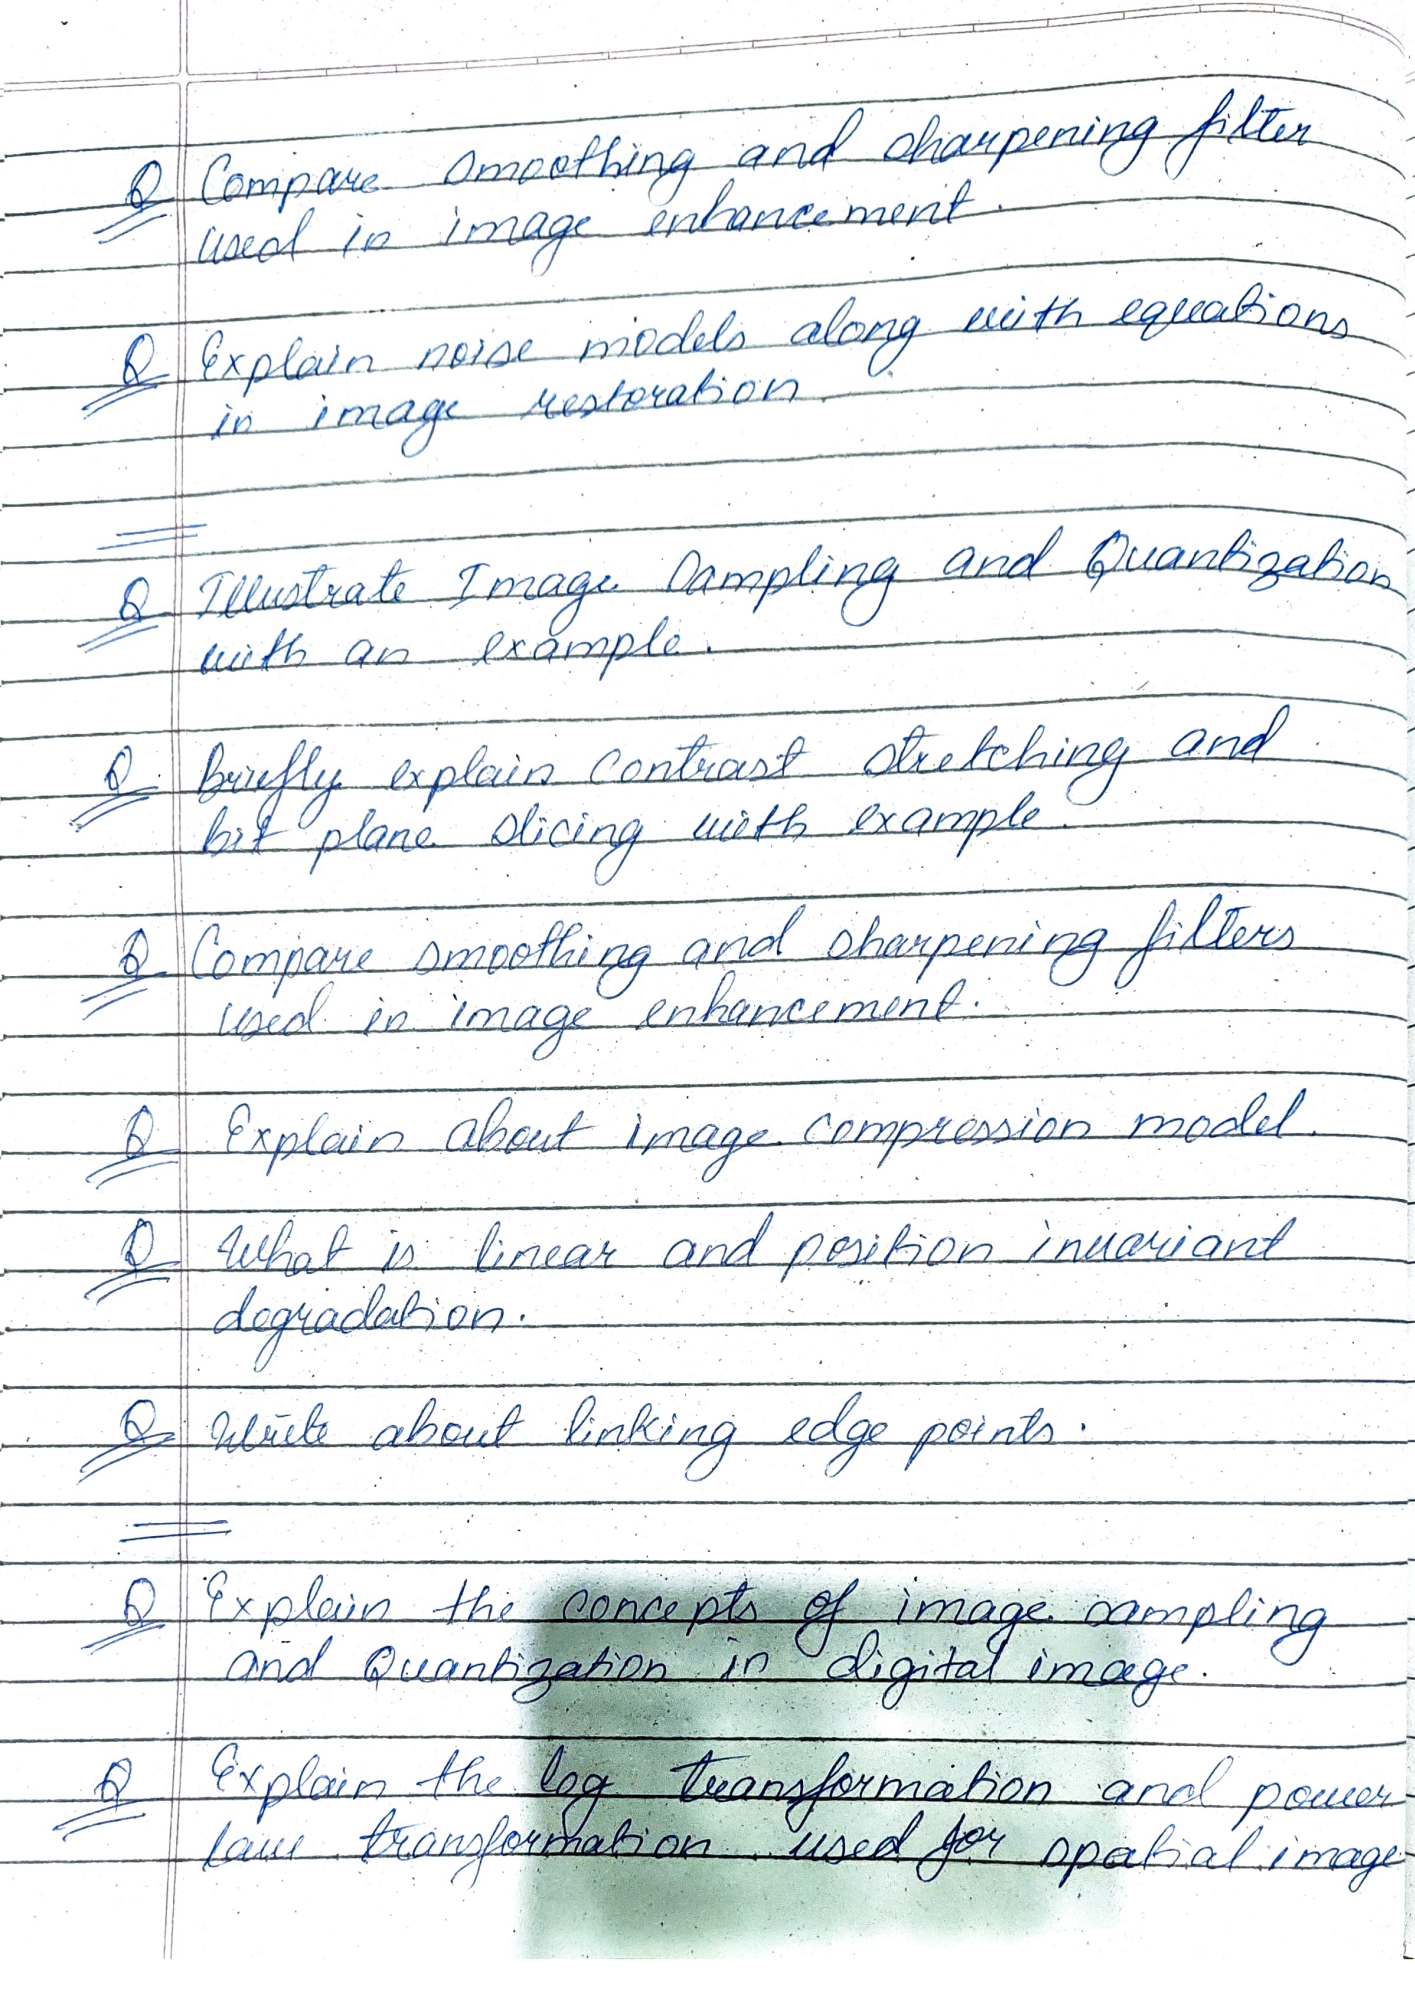 Q Compare smoothing and sharpening filter
used in image enhancement.
Q Explain noise models along with equations
in image restoration.
Q Illustrate Image Sampling and Quantization
with an example.
Q Briefly explain contrast stretching and
bit plane slicing with example.
Q Compare smoothing and sharpening filters
used in image enhancement.
Q Explain about image compression model.
Q What is linear and position invariant
degradation.
Q Write about linking edge points.
Q Explain the concepts of image sampling
and Quantization in digital image.
Q Explain the log transformation and power
law transformation used for spatial image